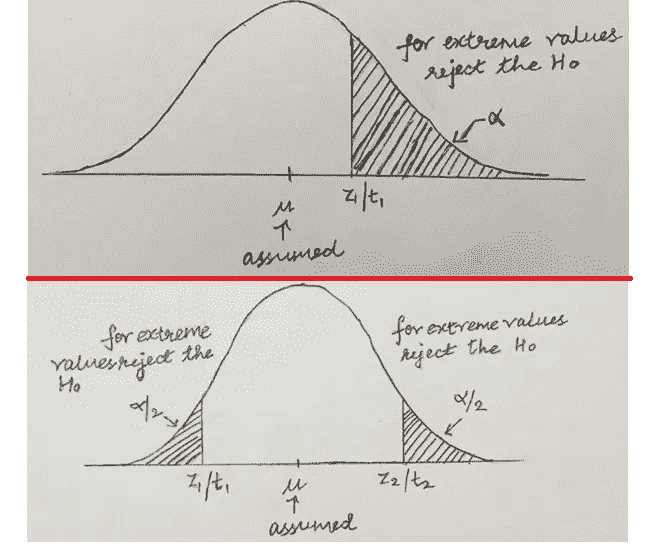 for extreme values
reject the Ho
α
μ
z₁/t₁
↑
assumed
for extreme
values reject the
Ho
for extreme values
reject the Ho
α/2
α/2
z₁/t₁
μ
z₂/t₂
↑
assumed